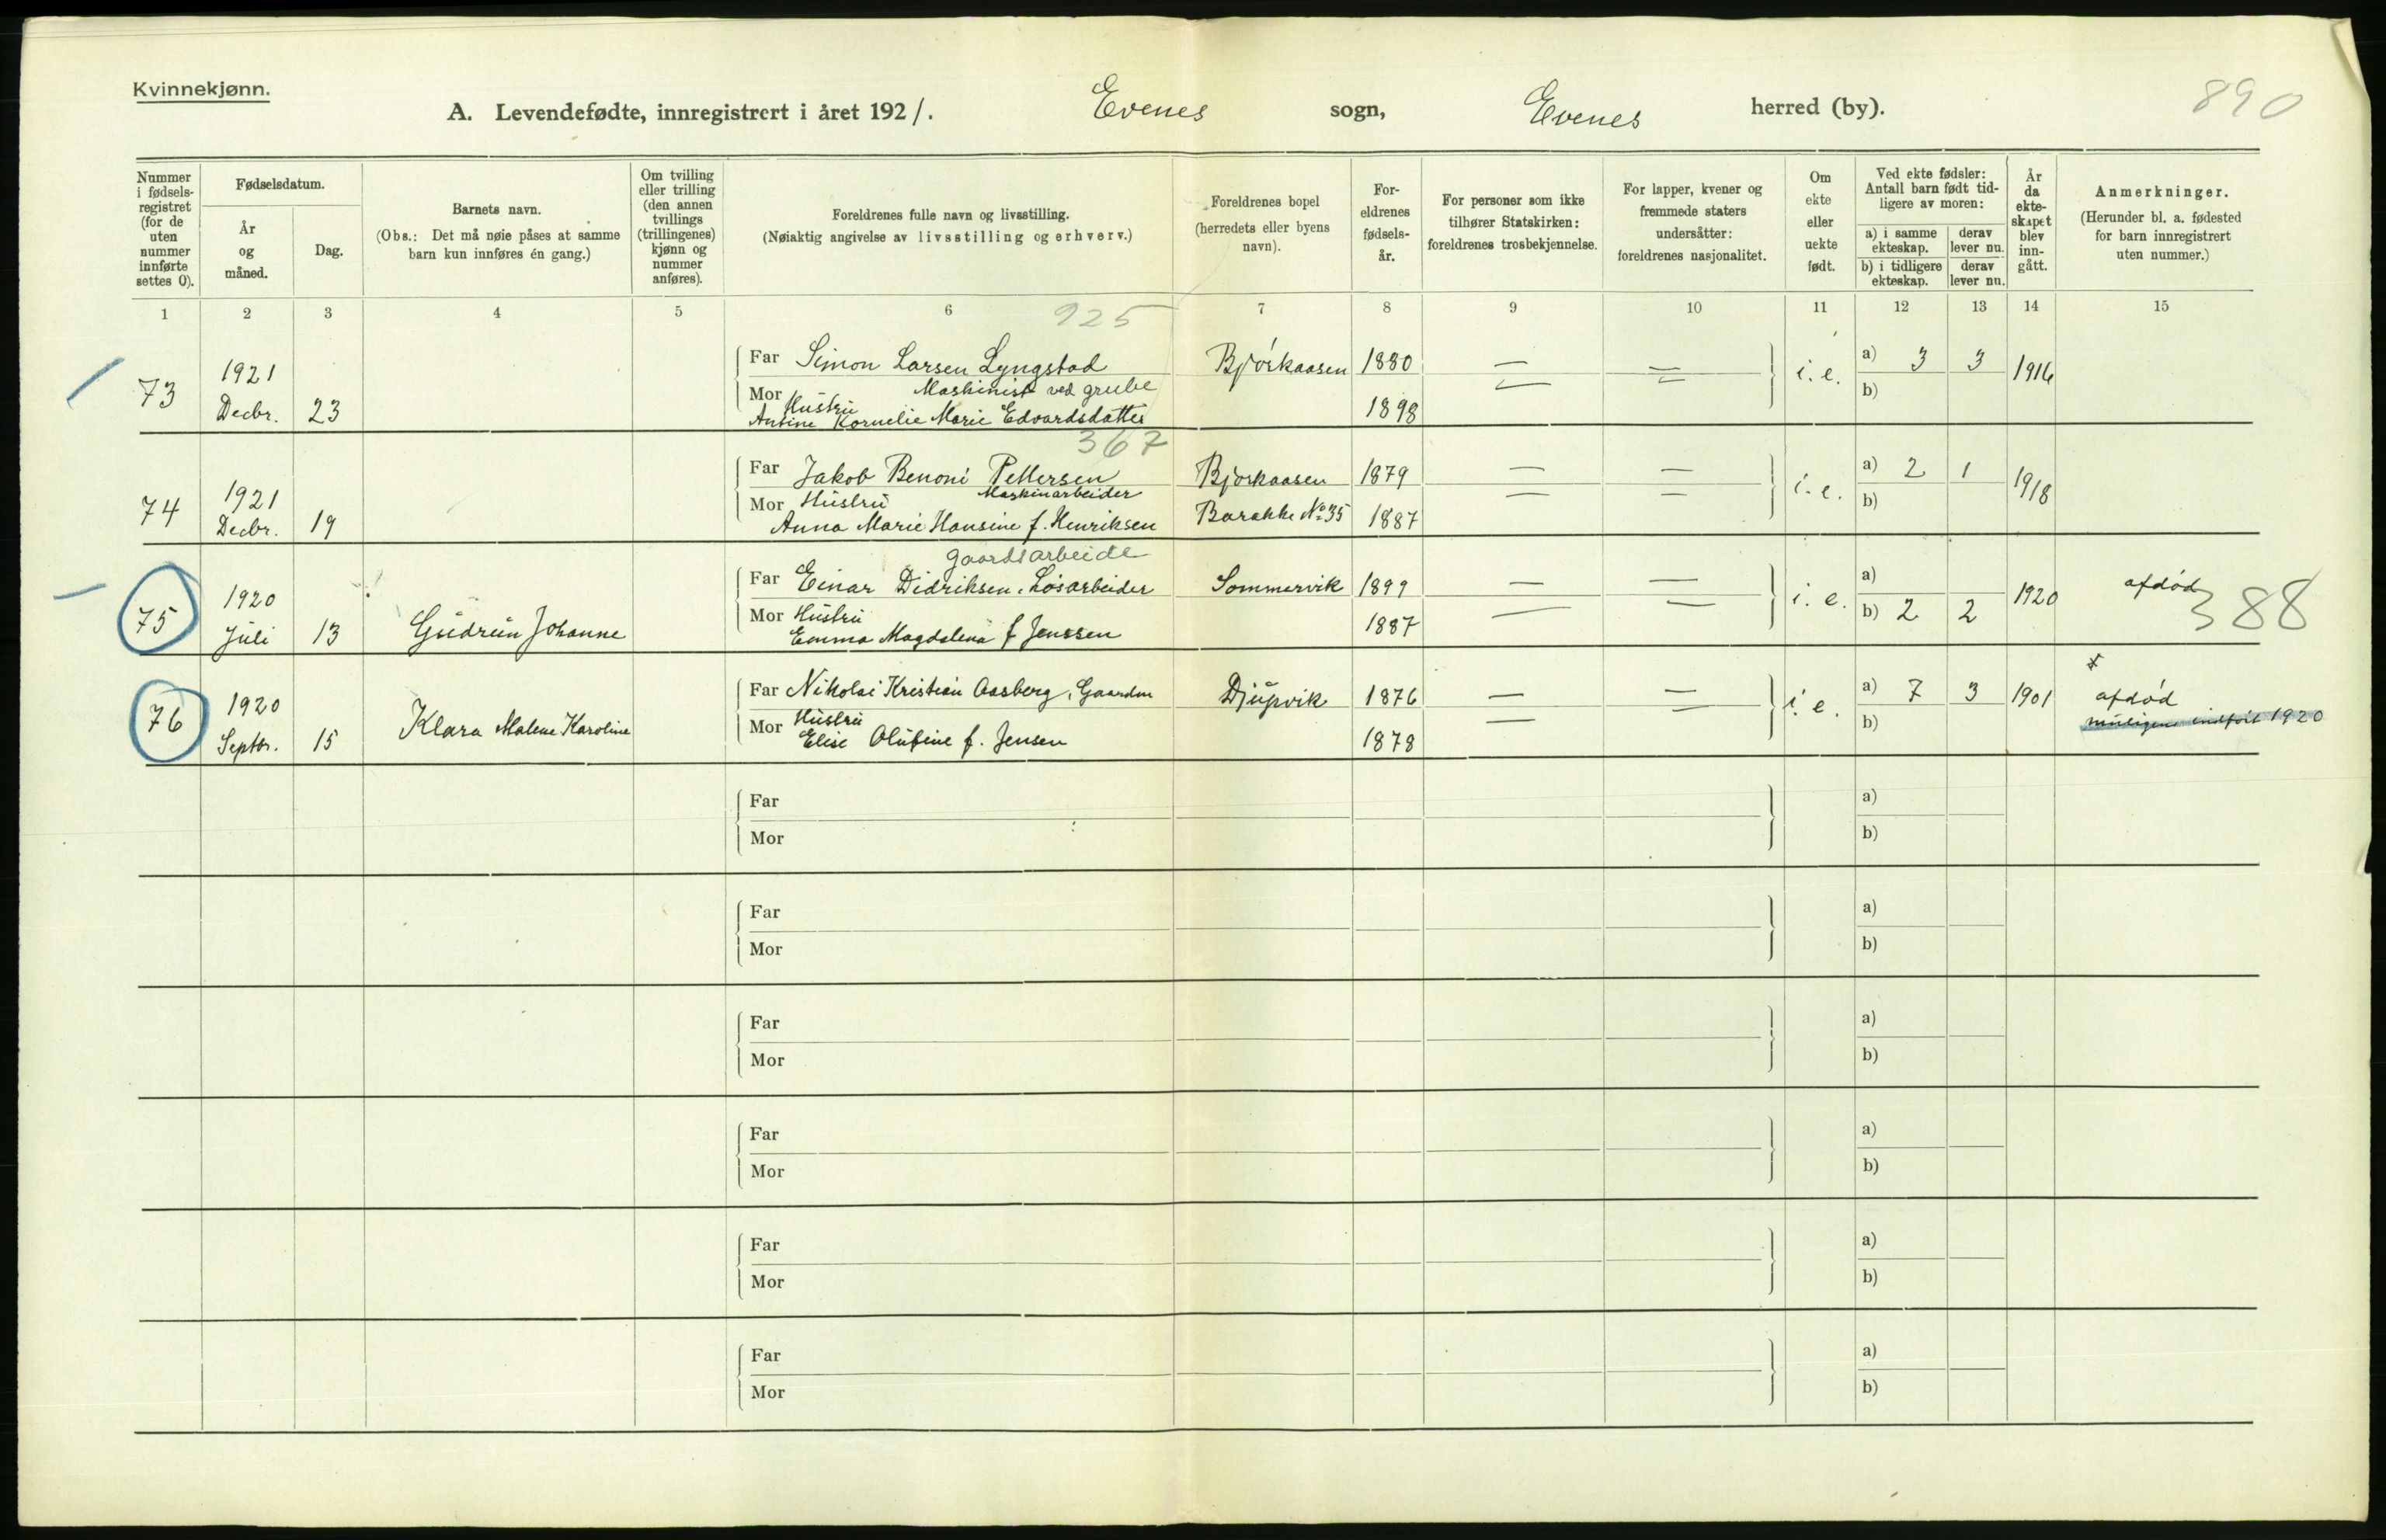 Kvinnekjønn.
A. Levendefødte, innregistrert i året 1921. Evenes sogn, Evenes herred (by).
890
Nummer i fødsels-registret (for de uten nummer innførte settes 0).
Fødselsdatum.
År og måned.
Dag.
Barnets navn.
(Obs.: Det må nøie påses at samme barn kun innføres én gang.)
Om tvilling eller trilling (den annen tvillings (trillingenes) kjønn og nummer anføres).
Foreldrenes fulle navn og livsstilling.
(Nøiaktig angivelse av livsstilling og erhverv.)
Foreldrenes bopel (herredets eller byens navn).
For-eldrenes fødsels-år.
For personer som ikke tilhører Statskirken: foreldrenes trosbekjennelse.
For lapper, kvener og fremmede staters undersåtter: foreldrenes nasjonalitet.
Om ekte eller uekte født.
Ved ekte fødsler: Antall barn født tid-ligere av moren:
a) i samme ekteskap. derav lever nu.
b) i tidligere ekteskap. derav lever nu.
År da ekte-skapet blev inn-gått.
Anmerkninger.
(Herunder bl. a. fødested for barn innregistrert uten nummer.)
1 2 3 4 5 6 7 8 9 10 11 12 13 14 15
925
73 1921 Decbr. 23
Far Simon Larsen Lyngstad
Maskinist ved grube
Mor Hustru
Antine Kornelie Marie Edvardsdatter
Bjørkaasen 1880
1898
— — i. e. a) 3 3 1916
b)
367
74 1921 Decbr. 19
Far Jakob Benoni Pettersen
Maskinarbeider
Mor Hustru
Anna Marie Hansine f. Henriksen
Bjørkaasen 1879
Barakke No 35 1887
— — i. e. a) 2 1 1918
b)
gaardsarbeide
75 1920 Juli 13 Gudrun Johanne
Far Einar Didriksen, Løsarbeider
Mor Hustru
Emma Magdalena f Jenssen
Sommervik 1899
1887
— — i. e. a)
b) 2 2 1920
afdød
388
76 1920 Septbr. 15 Klara Malene Karoline
Far Nikolai Kristian Aasberg, Gaardm
Mor Hustru
Elise Olufine f. Jensen
Djupvik 1876
1878
— — i. e. a) 7 3 1901
b)
afdød
muligens indført 1920
Far a)
Mor b)
Far a)
Mor b)
Far a)
Mor b)
Far a)
Mor b)
Far a)
Mor b)
Far a)
Mor b)